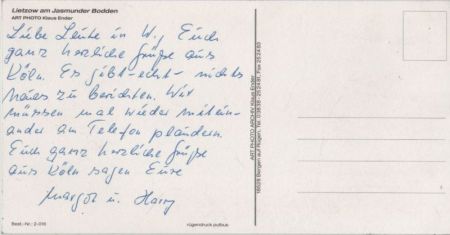 Lietzow am Jasmunder Bodden
ART PHOTO Klaus Ender
Liebe Leute in W., Euch
ganz herzliche Grüße aus
Köln. Es gibt - echt - nichts
neues zu berichten. Wir
müssen mal wieder mitein-
ander am Telefon plaudern.
Euch ganz herzliche Grüße
aus Köln sagen Eure
Margot u. Harry
Best.-Nr.: 2-016
rügendruck putbus
ART PHOTO ARCHIV Klaus Ender
18528 Bergen auf Rügen, Tel. 03838-252481, Fax 252483